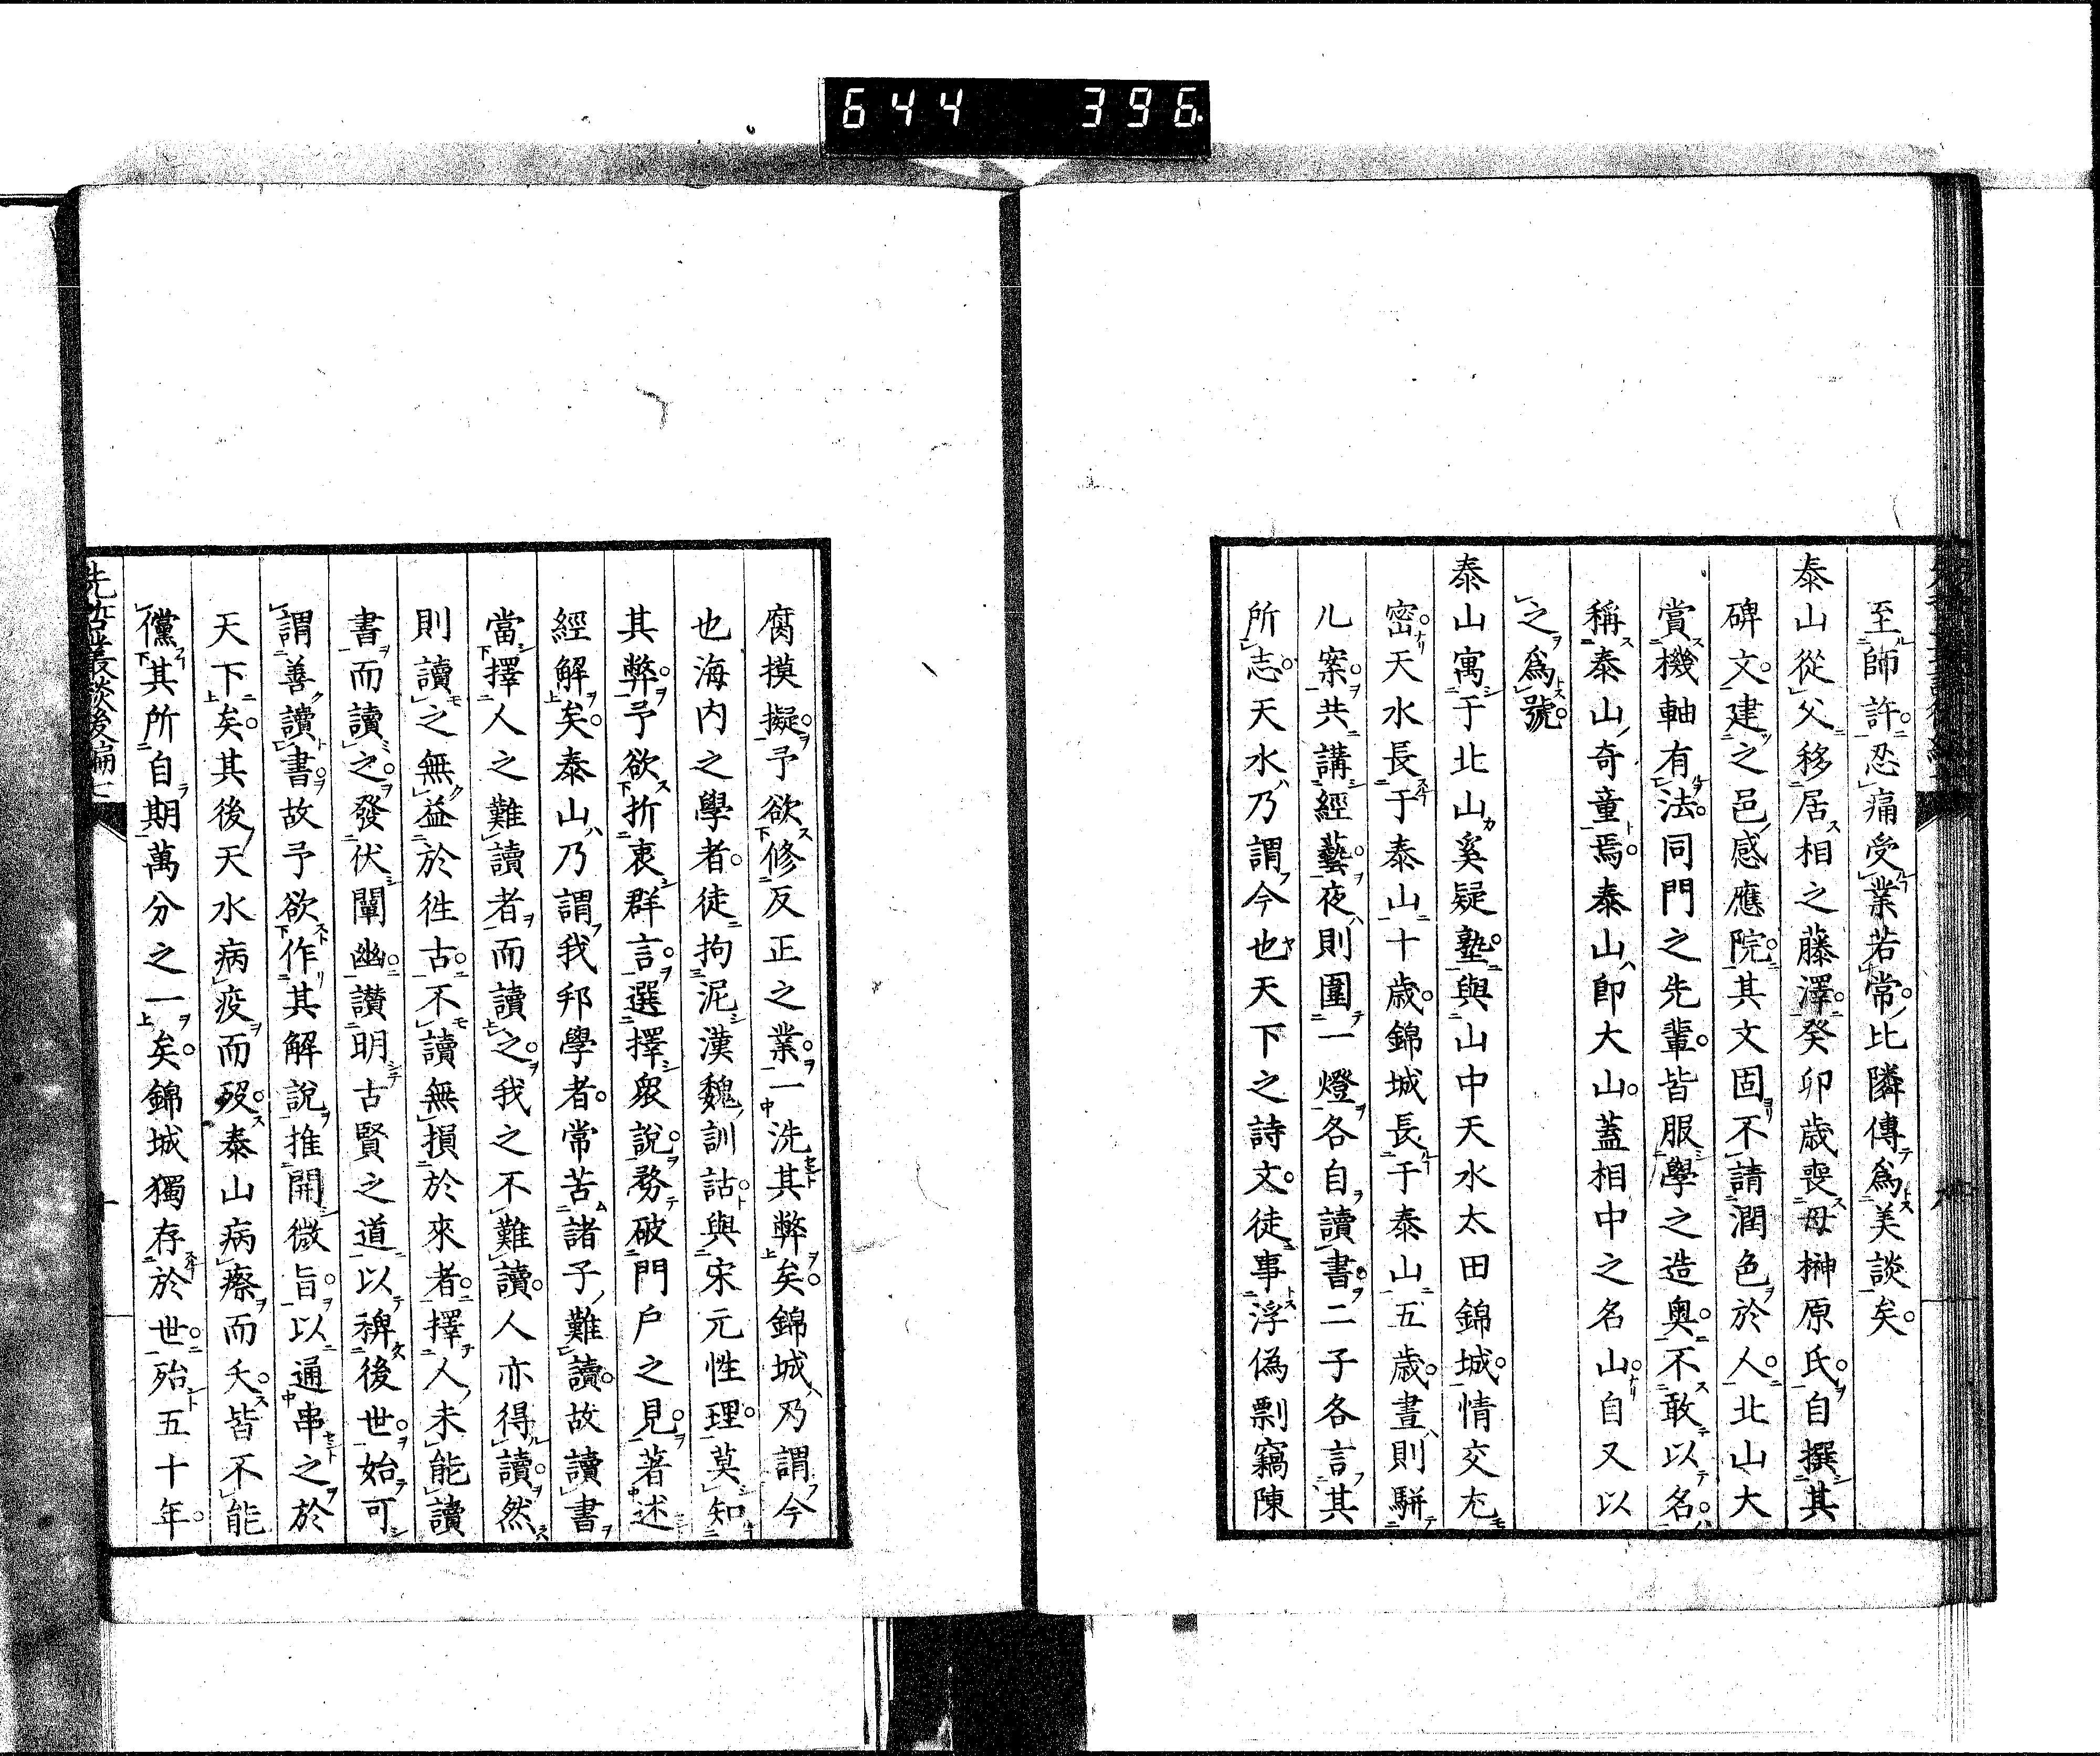 644 396
至師許忍痛受業若常比隣傳爲美談矣
泰山從父移居相之藤澤癸卯歳喪母榊原氏自撰其
碑文建之邑感應院其文固不請潤色於人北山大
賞機軸有法同門之先輩皆服學之造奧不敢以名
稱泰山奇童焉泰山即大山蓋相中之名山自又以
之爲號
泰山寓于北山奚疑塾與山中天水太田錦城情交尤
密天水長于泰山十歳錦城長于泰山五歳晝則駢
几案共講經藝夜則圍一燈各自讀書二子各言其
所志天水乃謂今也天下之詩文徒事浮偽剽竊陳
腐摸擬予欲修反正之業一洗其弊矣錦城乃謂今
也海内之學者徒拘泥漢魏訓詁與宋元性理莫知
其弊予欲折衷群言選擇衆說務破門戸之見著述
經解矣泰山乃謂我邦學者常苦諸子難讀故讀書
當擇人之難讀者而讀之我之不難讀人亦得讀然
則讀之無益於徃古不讀無損於來者擇人未能讀
書而讀之發伏闡幽讃明古賢之道以裨後世始可
謂善讀書故予欲作其解說推開微旨以通串之於
天下矣其後天水病疫而歿泰山病瘵而夭皆不能
儻其所自期萬分之一矣錦城獨存於世殆五十年
先哲叢談後編七 十